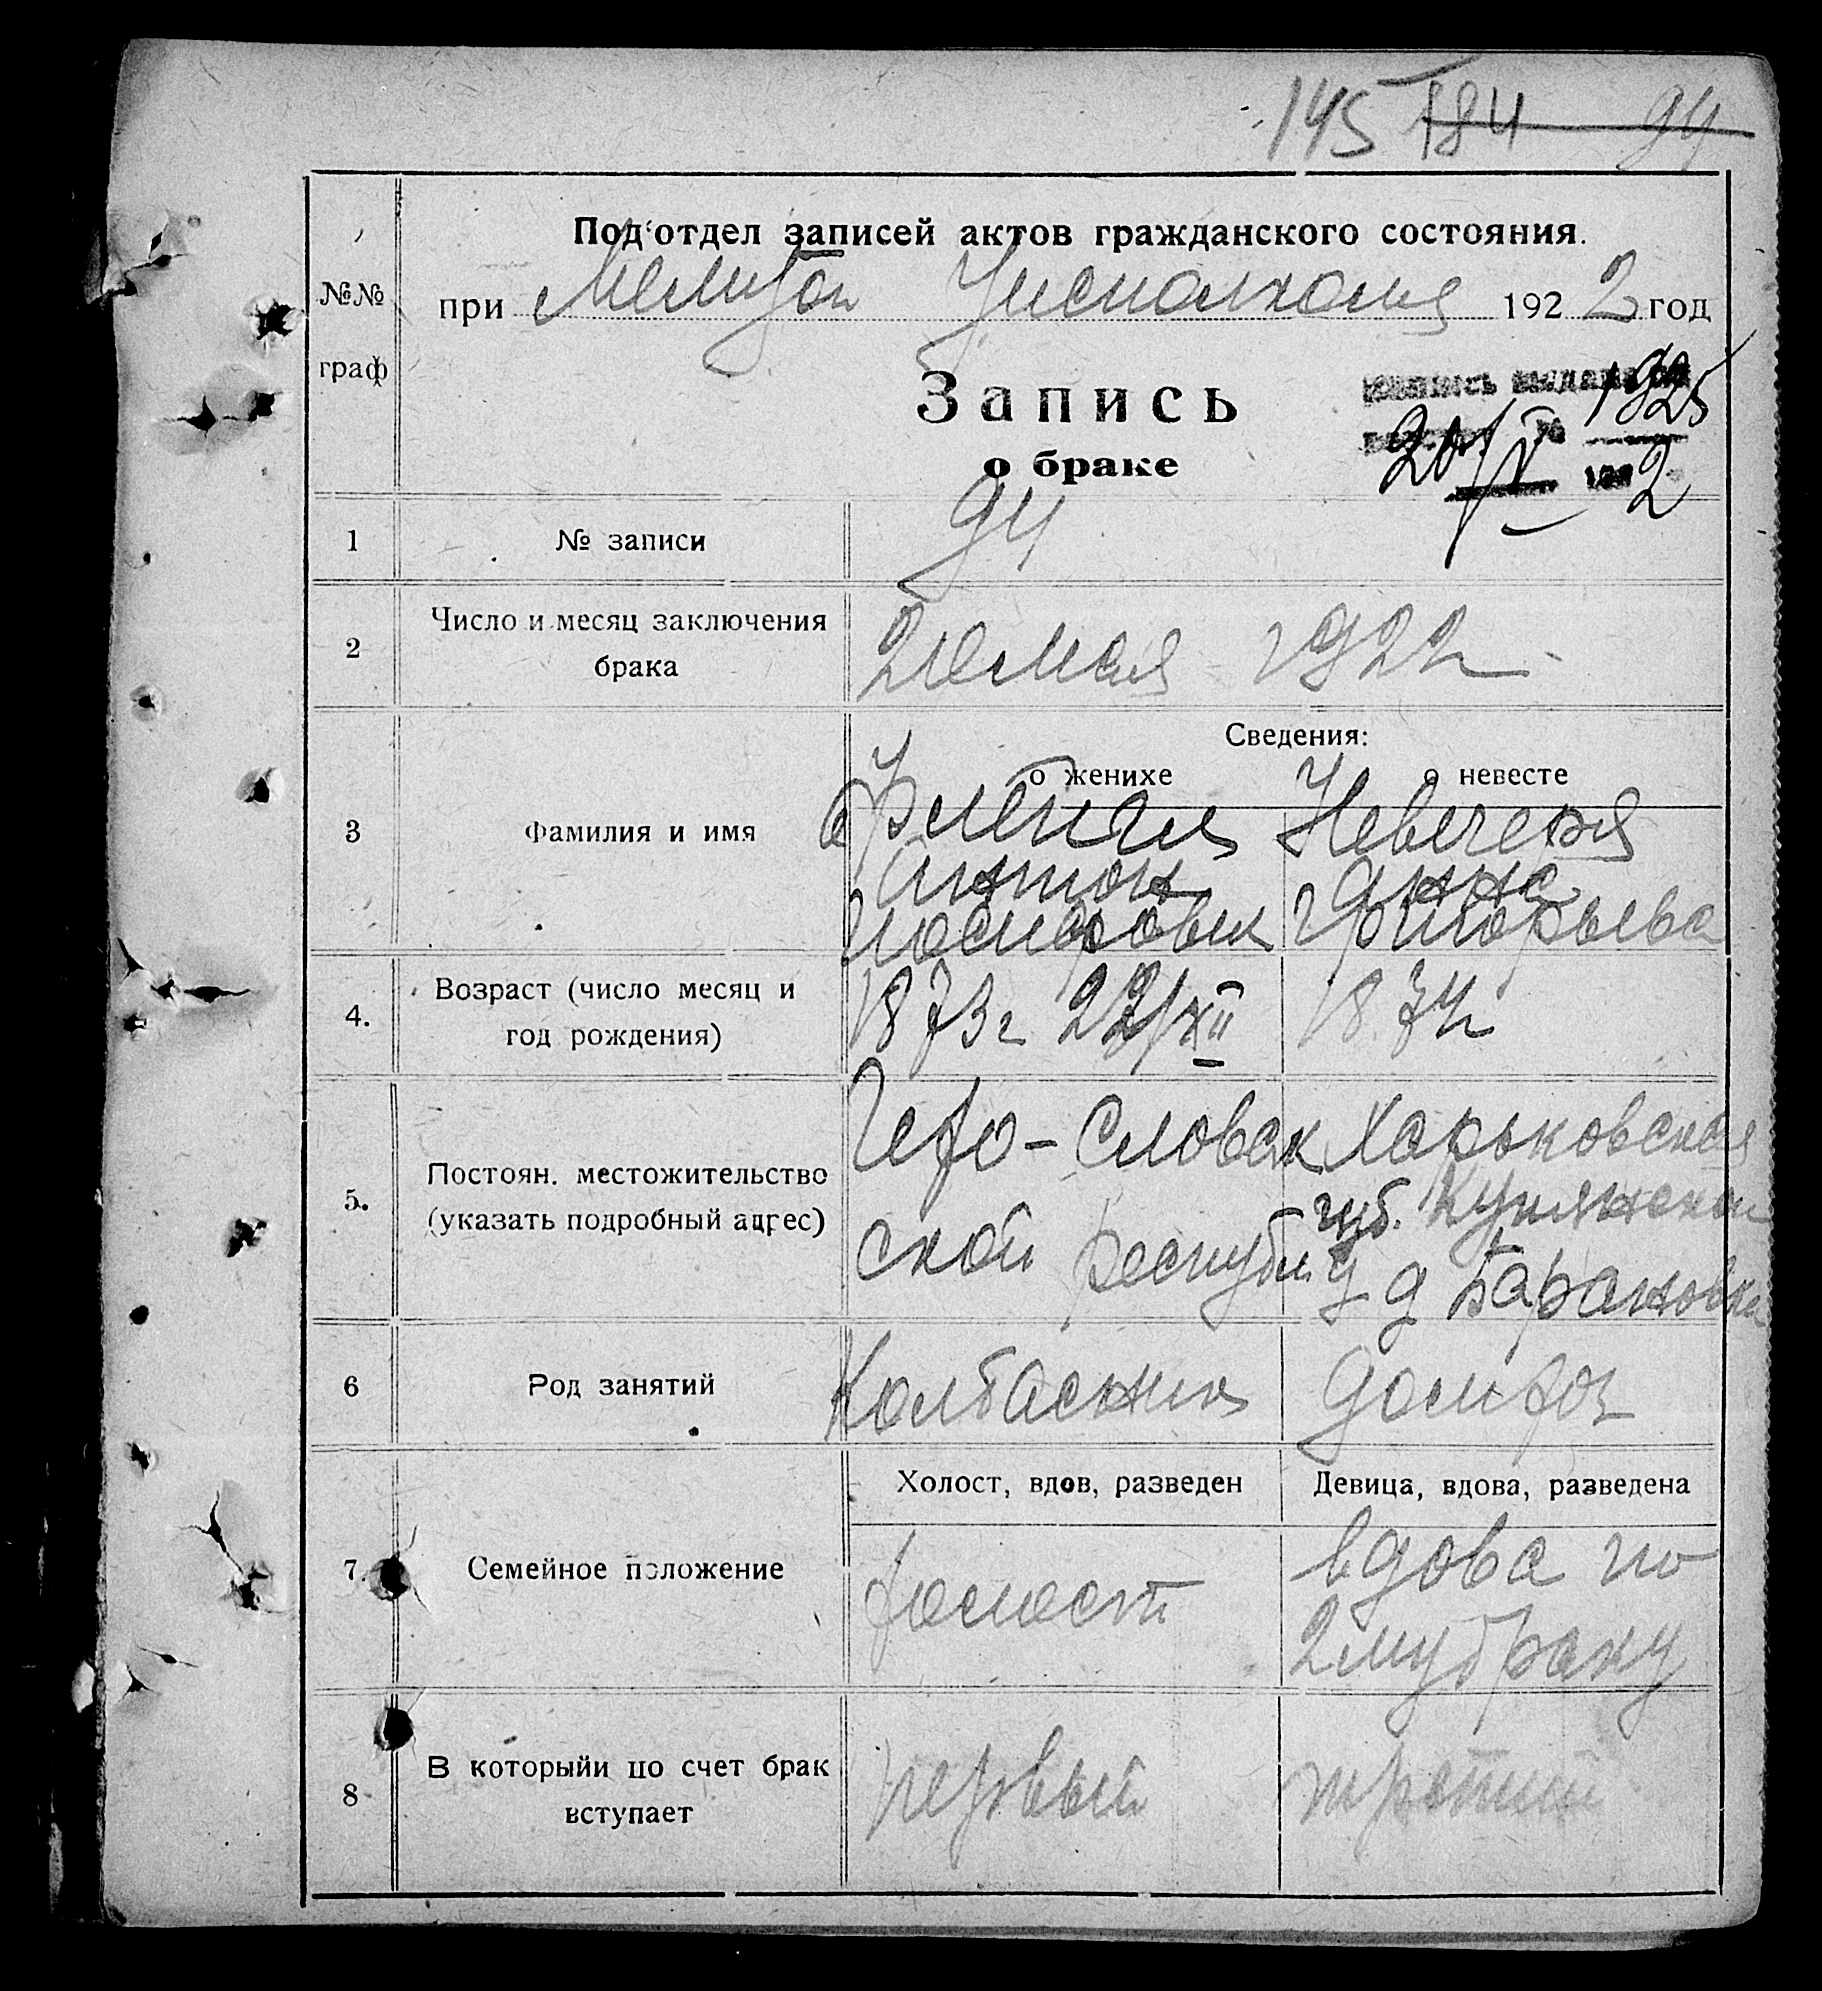 145 184 94
Под отдел записей актов гражданского состояния.
№№ граф
при Мелитоп Уисполкома 1922 год
Запись
о браке
выдана
1925
20/V 2
1 № записи 94
2 Число и месяц заключения брака 20 мая 1922 г
Сведения:
о женихе о невесте
3 Фамилия и имя
Невечеря
Антон Анна
Иосифович Григорьева
4. Возраст (число месяц и год рождения) 1873 г 22/XII 1874
5. Постоян. местожительство (указать подробный адрес)
Чехо-Словак Харьковская
ской республ. губ. Купянской
у д Барановка
6 Род занятий Колбасник домхоз
Холост, вдов, разведен Девица, вдова, разведена
7. Семейное положение холост вдова по
2му браку
8 В которыйи по счет брак вступает первый третий